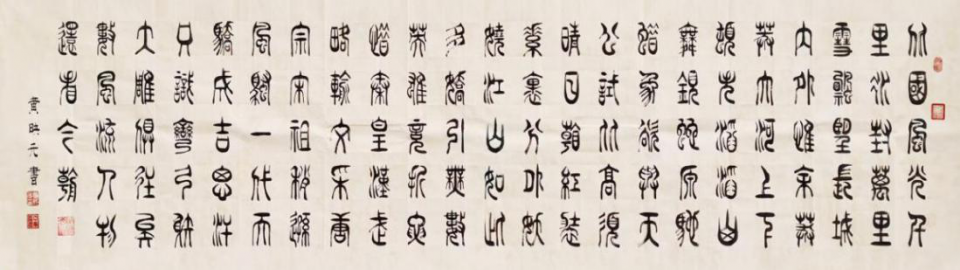 北國風光千
里冰封萬里
雪飄望長城
內外惟余莽
莽大河上下
頓失滔滔山
舞銀蛇原馳
蠟象欲與天
公試比高須
晴日看紅裝
素裹分外妖
嬈江山如此
多嬌引無數
英雄競折腰
惜秦皇漢武
略輸文采唐
宗宋祖稍遜
風騷一代天
驕成吉思汗
只識彎弓射
大雕俱往矣
數風流人物
還看今朝
黄元書